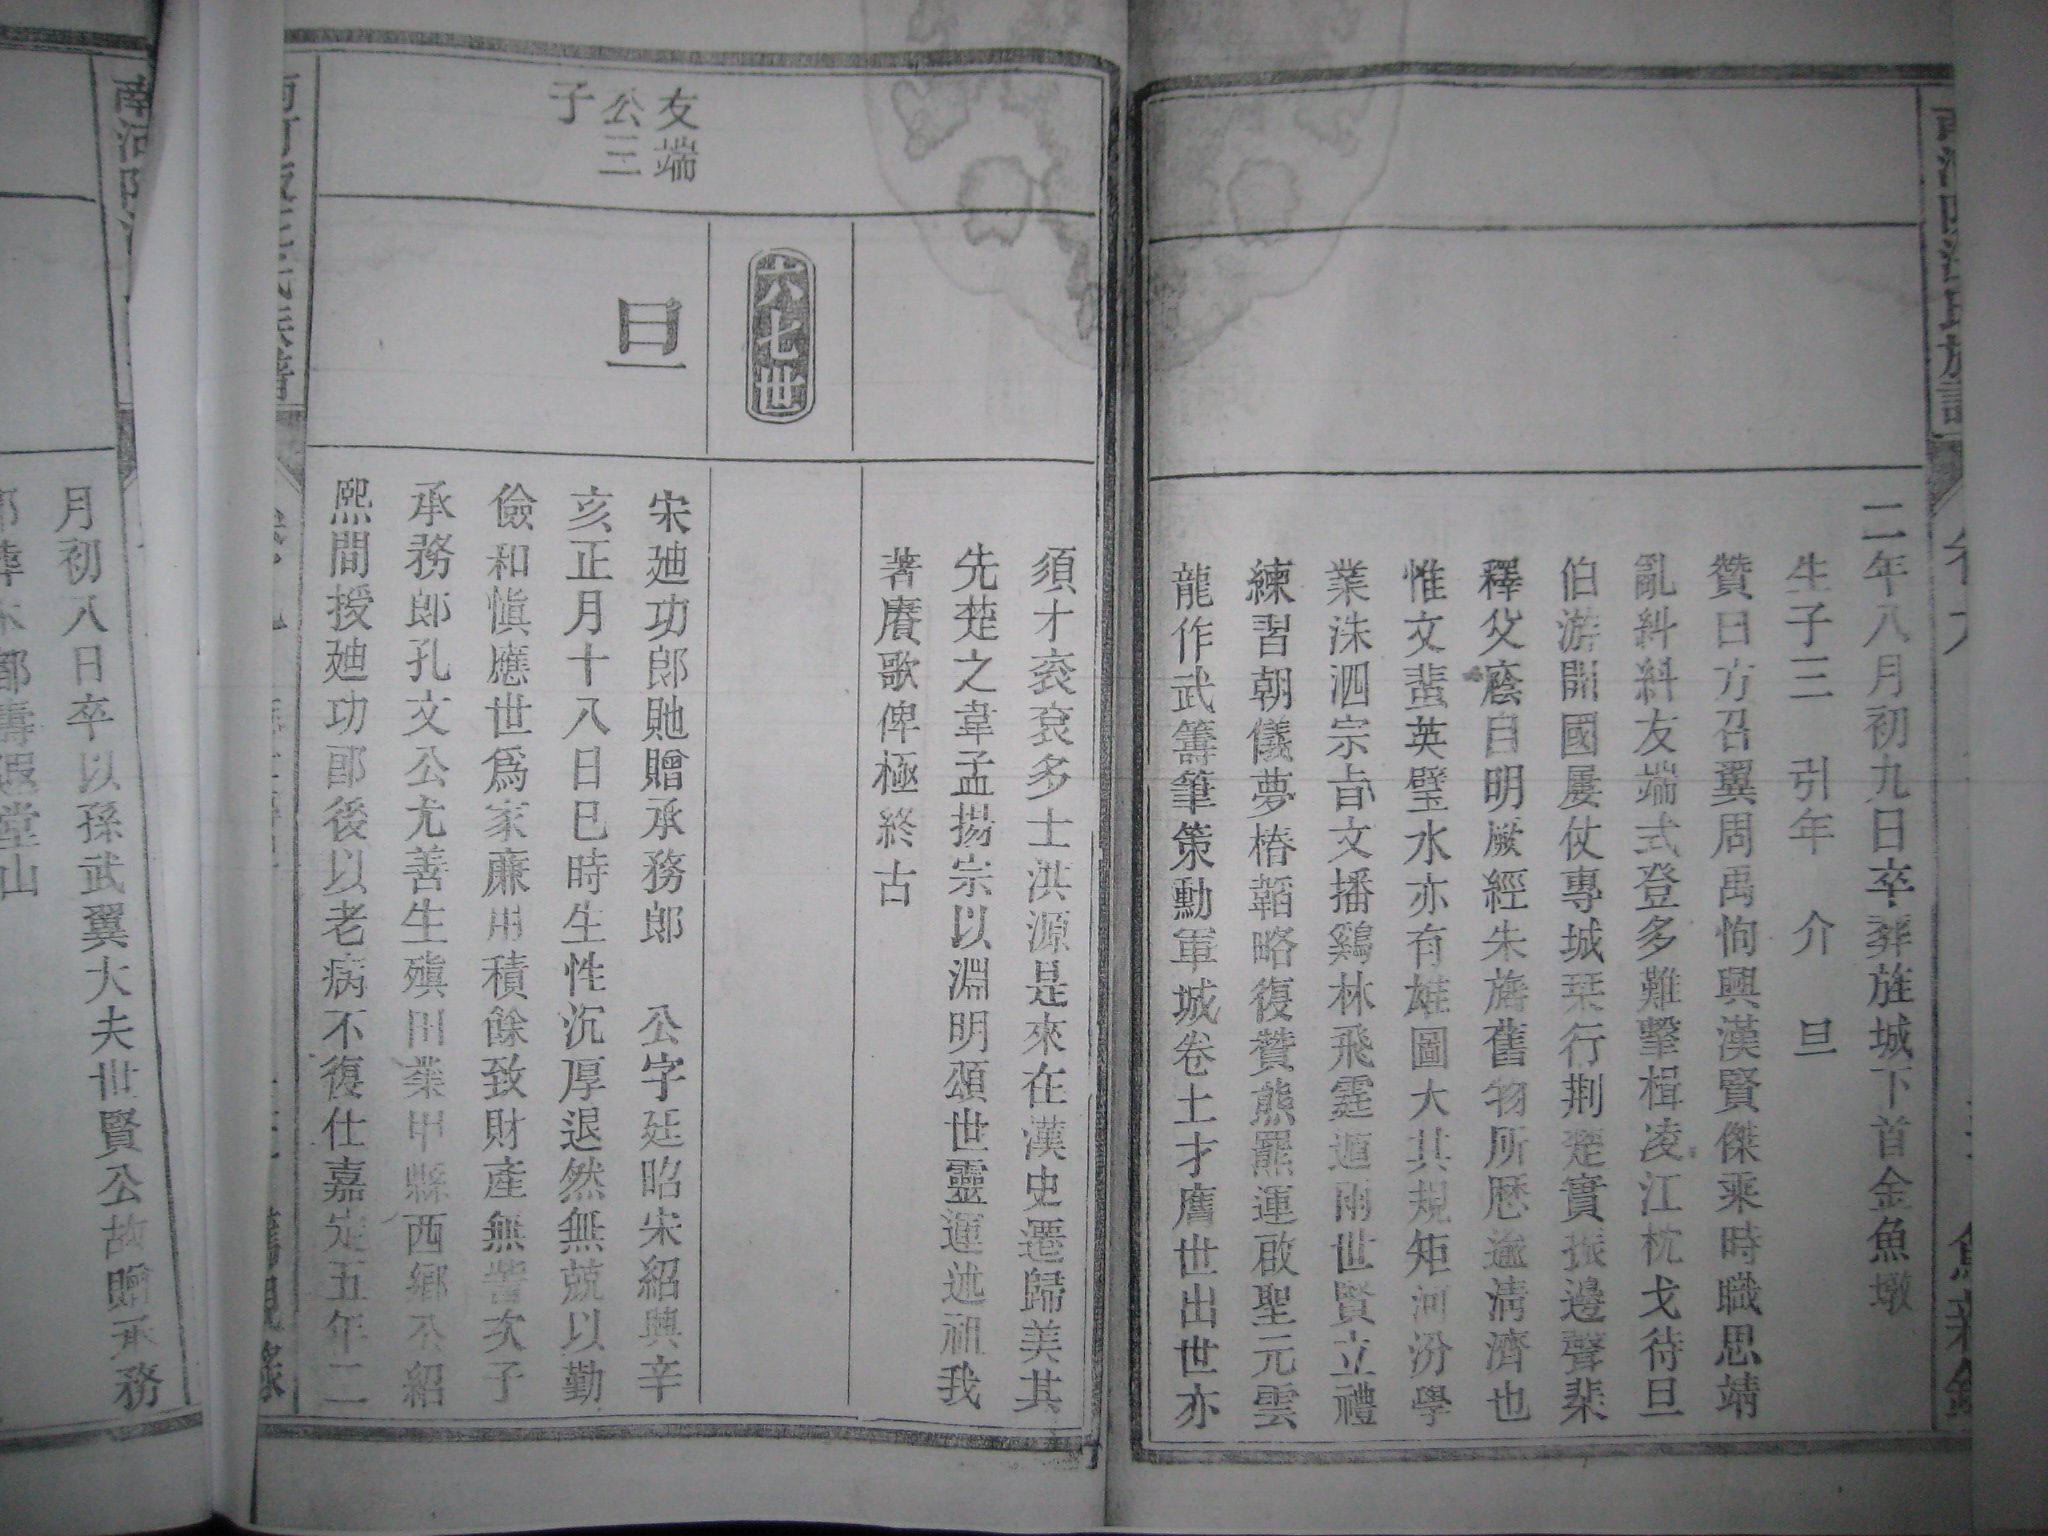 二年八月初九日卒葬旌城下首金魚墩
生子三 引年 介 旦
贊曰方召翼周禹恂興漢賢傑乘時職思靖
亂糾糾友端式登多難擊楫凌江枕戈待旦
伯游開國屢仗專城栞行荆楚實振邊聲棐
釋父廕自明厥經朱旛舊物所歴遊淸濟也
惟文蜚英璧水亦有雄圖大其規矩河汾學
業洙泗宗旨文播鷄林飛霆遁雨世賢立禮
練習朝儀夢椿韜略復贊熊羆運啟聖元雲
龍作武籌筆策勳軍城卷土才膺世出世亦
須才袞袞多士洪源是來在漢史遷歸美其
先楚之韋孟揚宗以淵明頌世靈運述祖我
著賡歌俾極終古
六七世
友端
公三
子
旦
宋廸功郎貤贈承務郎 公字廷昭宋紹興辛
亥正月十八日巳時生性沉厚退然無競以勤
儉和愼應世爲家亷用積餘致財產無訾次子
承務郎孔文公尤善生殖田業甲縣西鄉公紹
熙間授廸功郎後以老病不復仕嘉定五年二
月初八日卒以孫武翼大夫世賢公故贈承務